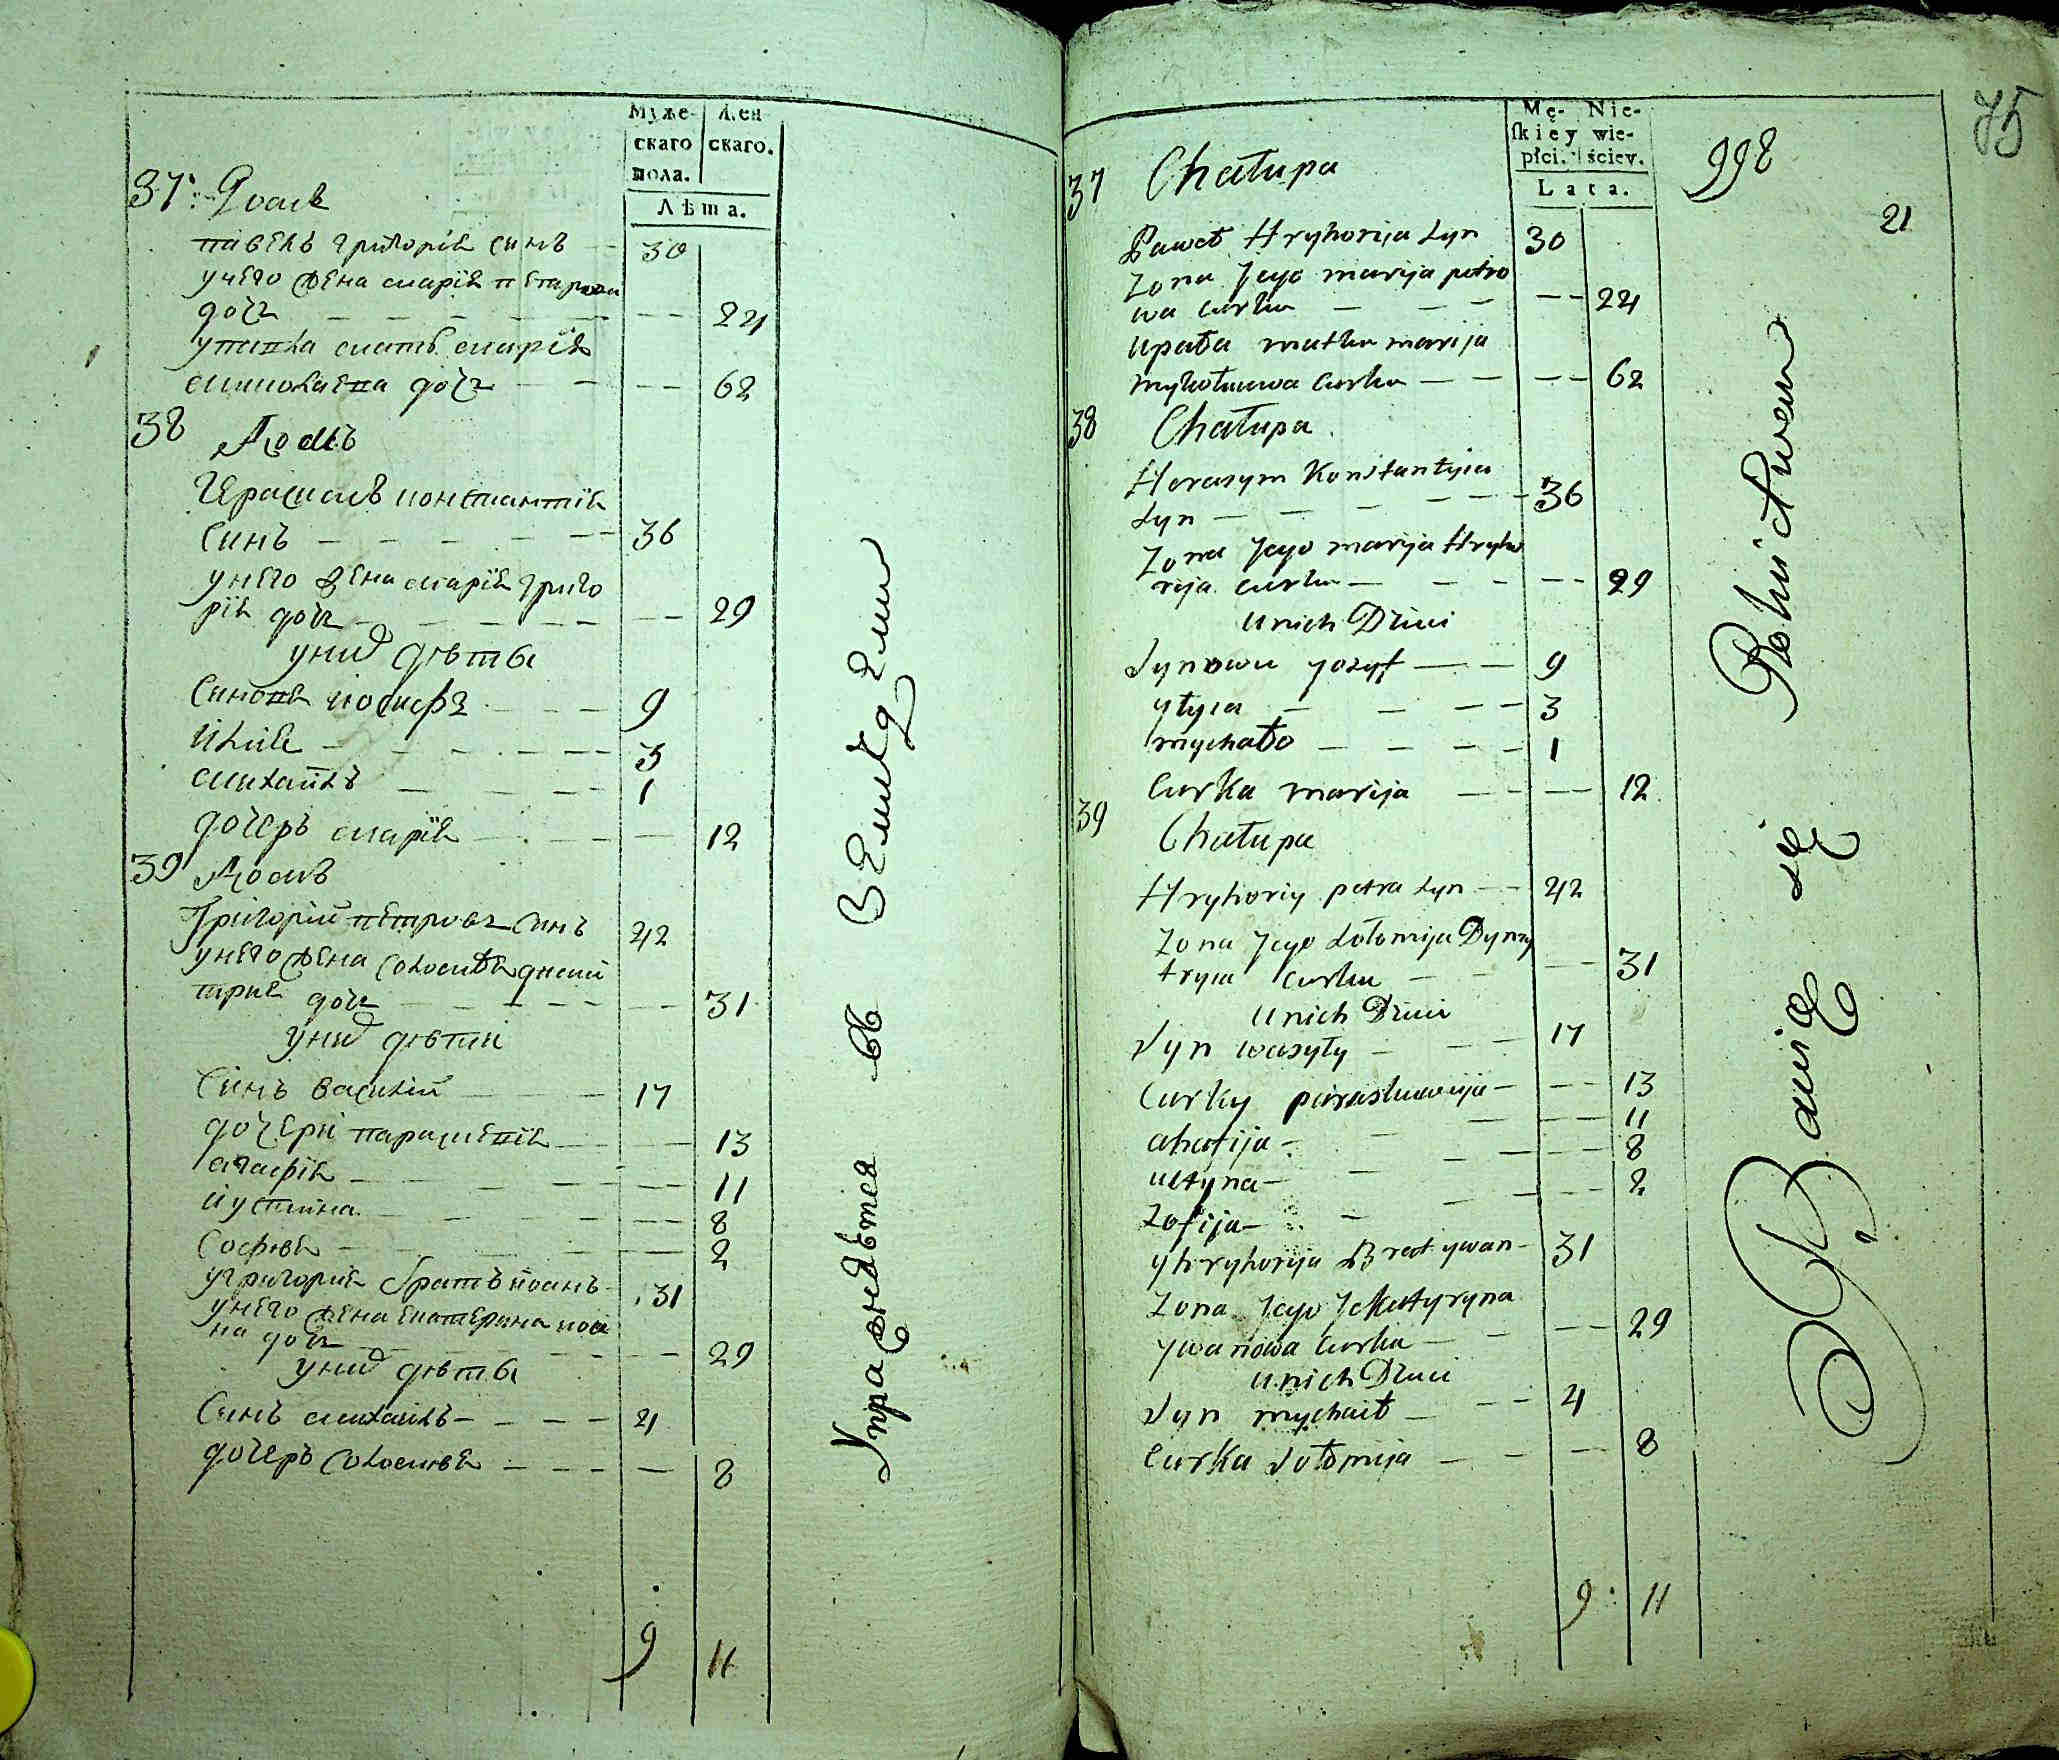 Муже-
скаго
пола.
Жен
скаго.
Лѣта.
37. Домъ
павелъ григорія синъ 30
у него жена марія петрова
дочь 24
у павла мать марія
миколаева дочь 62
38 Домъ
Герасимъ константія
синъ 36
у него жена марія григо
рія дочь 29
у них дѣти
Синовя иосифъ 9
илія 3
михаилъ 1
дочеръ марія 12
39 Домъ
Григорій петровъ Синъ 42
у него жена Соломія дмы
трия дочь 31
у них дѣти
Синъ василій 17
дочери парасковія 13
агафія 11
иустина 8
Софія 2
у григорія братъ иоанъ 31
у него жена екатерина иоа
на дочь 29
у них дѣти
Синъ михаилъ 4
дочеръ Соломія 8
9 11
Упражнѣется въ Земледелии
Mę-
skiey
płci.
Nie-
wie-
ściey.
Lata.
998
75
21
37 Chałupa
Paweł Hryhorija Syn 30
Zona Jego marija petro
wa curka 24
u pała matka marija
mykołauwa Curka 62
38 Chałupa
Harasym Konstantyia
Syn 36
Zona Jego marija Hryho
rija curka 29
u nich Dzieci
Synowu yozyf 9
yłyia 3
mychało 1
Curka marija 12
39 Chałupa
Hryhoriy petra Syn 42
Zona Jego Sołomija Dymy
tryia curka 31
u nich Dzieci
Syn wasyły 17
Curky paraskuwija 13
ahafija 11
ustyna 8
Zofija 2
y hryhorija Brat ywan 31
Zona Jego Jekatyryna
ywanowa Curka 29
u nich Dzieci
Syn mychaił 4
Curka Sołomija 8
9 11
Bawię się Rolnictwem